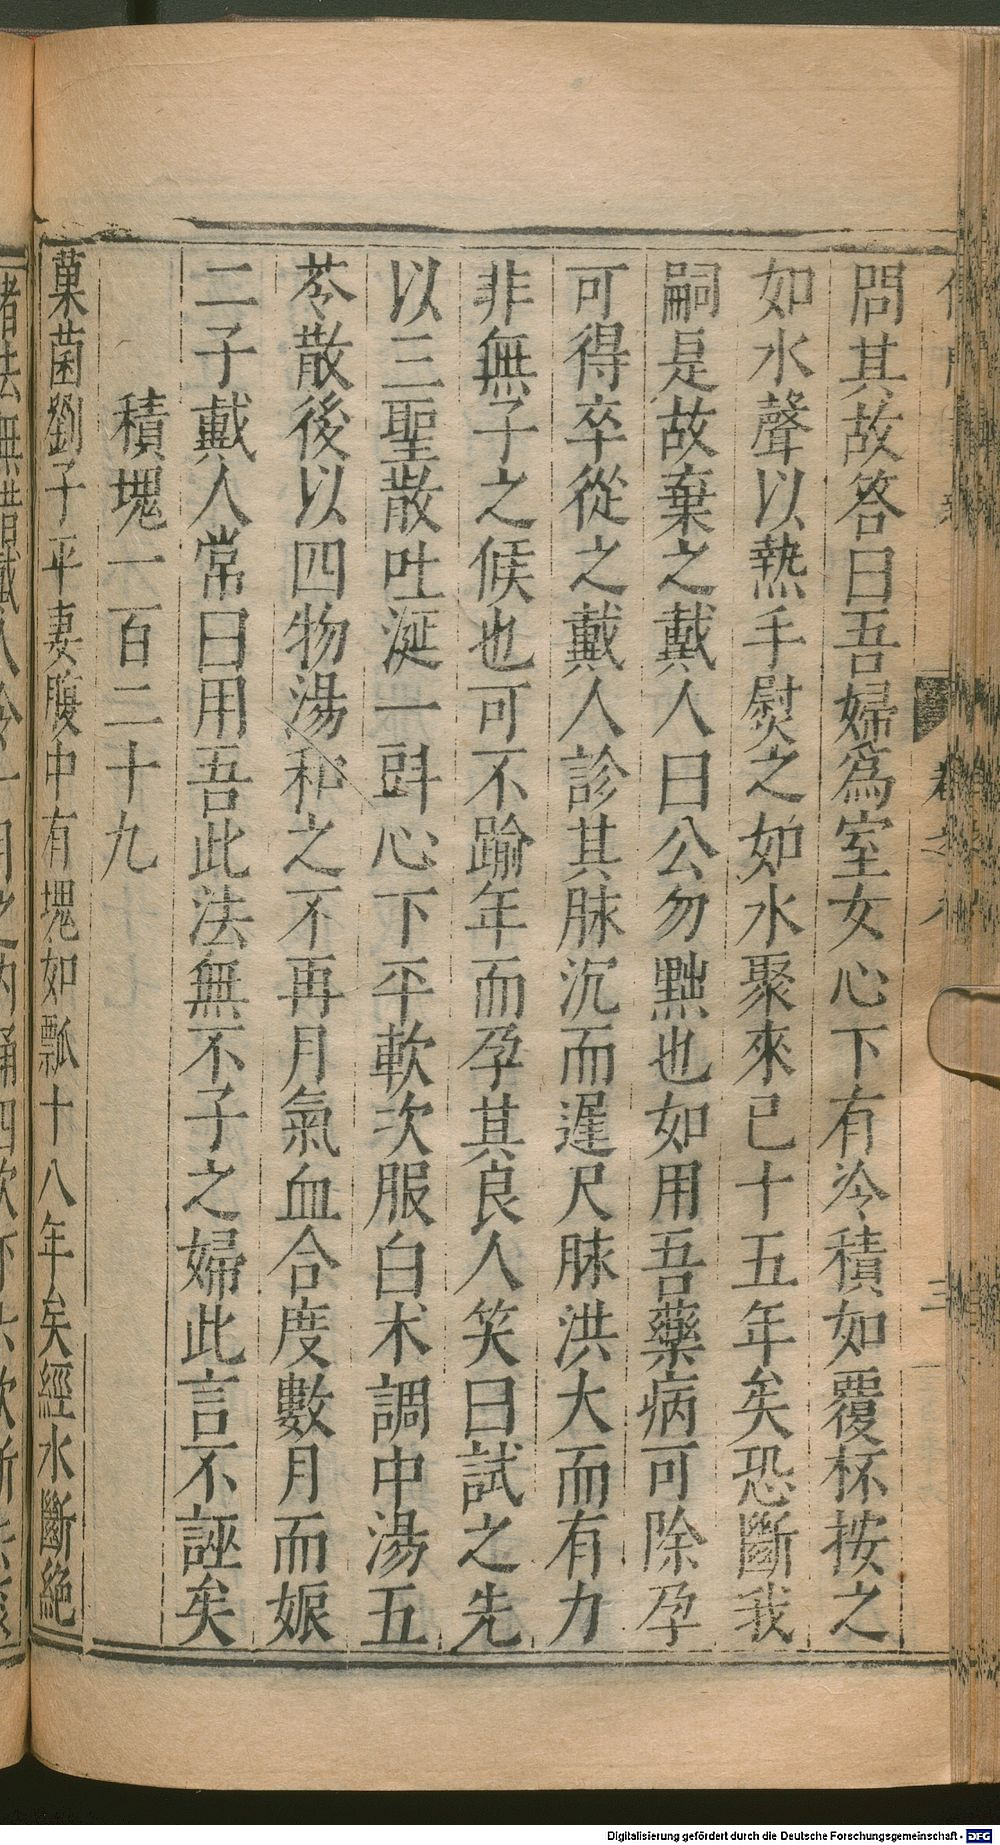 問其故答曰吾婦爲室女心下有冷積如覆杯按之
如水聲以熱手熨之如水聚來已十五年矣恐斷我
嗣是故棄之戴人曰公勿黜也如用吾藥病可除孕
可得卒從之戴人診其脉沉而遲尺脉洪大而有力
非無子之候也可不踰年而孕其良人笑曰試之先
以三聖散吐涎一㪷心下平軟次服白朮調中湯五
苓散後以四物湯和之不再月氣血合度數月而娠
二子戴人常曰用吾此法無不子之婦此言不誣矣
積塊一百二十九
菓菌劉子平妻腹中有塊如瓢十八年矣經水斷絶
Digitalisierung gefördert durch die Deutsche Forschungsgemeinschaft - DFG